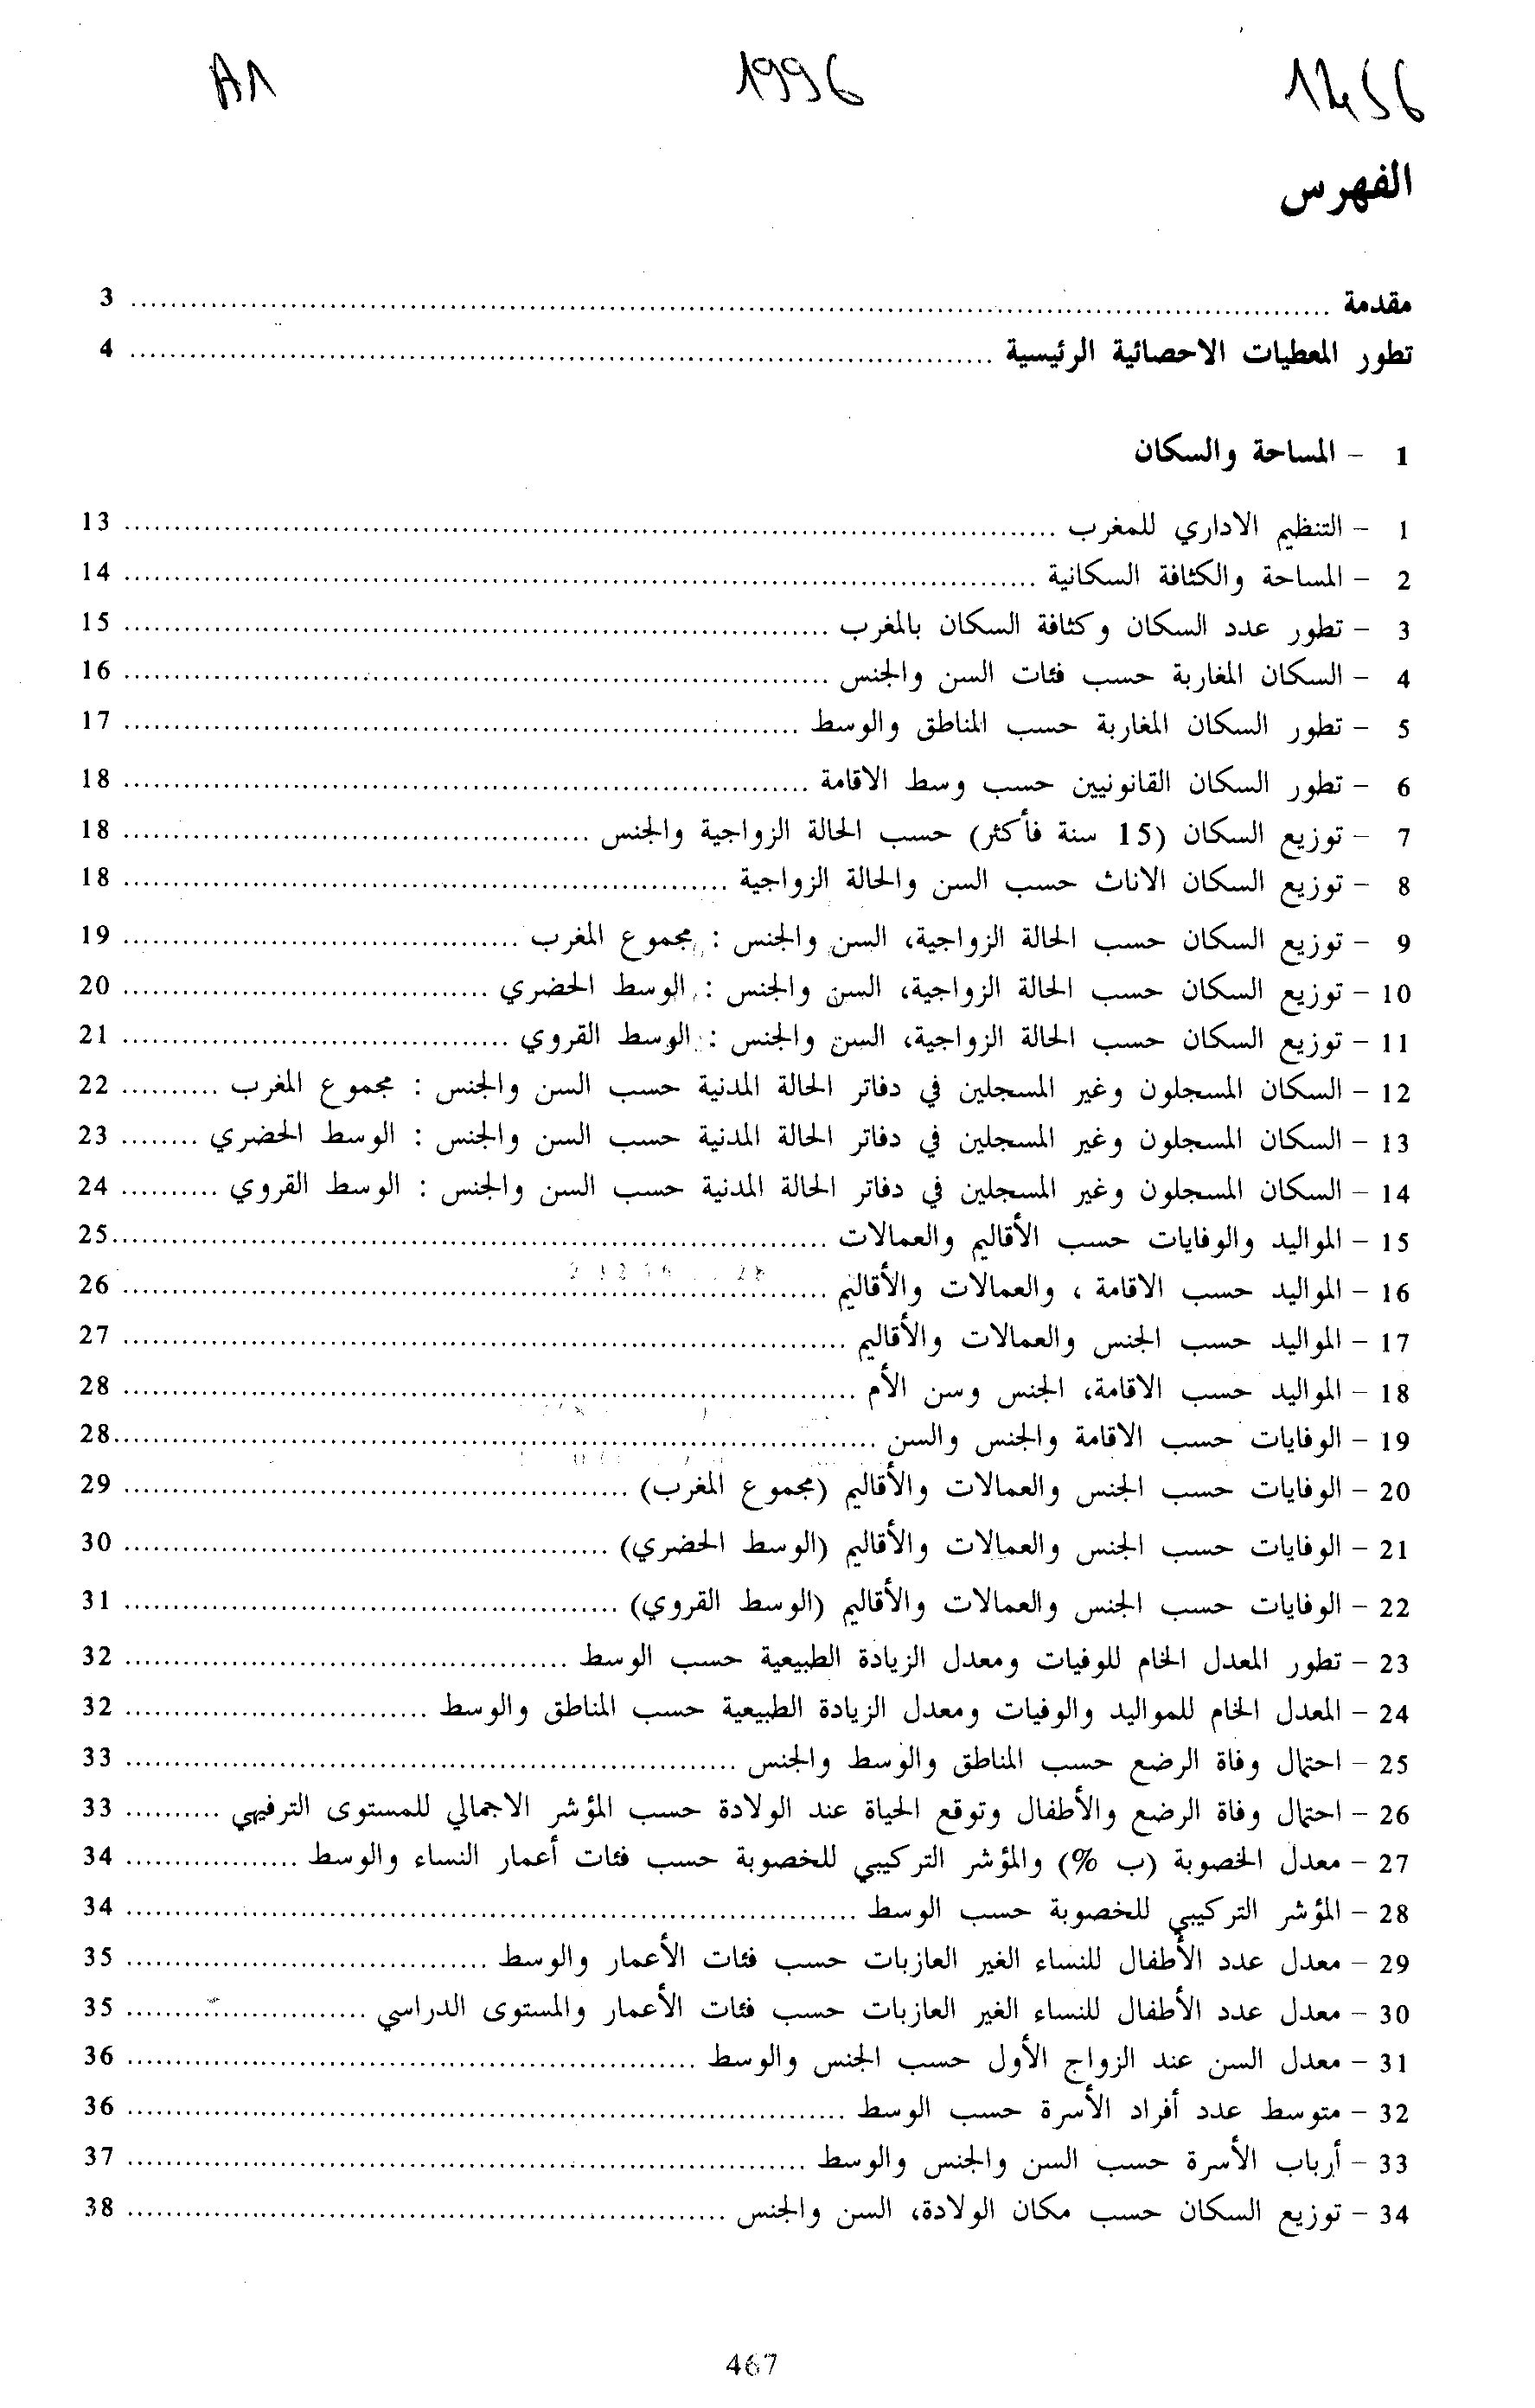 A1 1996 12456
الفهرس
مقدمة ........ 3
تطور المعطيات الاحصائية الرئيسية ........ 4
1 - المساحة والسكان
1 - التنظيم الاداري للمغرب ........ 13
2 - المساحة والكثافة السكانية ........ 14
3 - تطور عدد السكان وكثافة السكان بالمغرب ........ 15
4 - السكان المغاربة حسب فئات السن والجنس ........ 16
5 - تطور السكان المغاربة حسب المناطق والوسط ........ 17
6 - تطور السكان القانونيين حسب وسط الاقامة ........ 18
7 - توزيع السكان (15 سنة فأكثر) حسب الحالة الزواجية والجنس ........ 18
8 - توزيع السكان الاناث حسب السن والحالة الزواجية ........ 18
9 - توزيع السكان حسب الحالة الزواجية، السن والجنس : مجموع المغرب ........ 19
10 - توزيع السكان حسب الحالة الزواجية، السن والجنس : الوسط الحضري ........ 20
11 - توزيع السكان حسب الحالة الزواجية، السن والجنس : الوسط القروي ........ 21
12 - السكان المسجلون وغير المسجلين في دفاتر الحالة المدنية حسب السن والجنس : مجموع المغرب ........ 22
13 - السكان المسجلون وغير المسجلين في دفاتر الحالة المدنية حسب السن والجنس : الوسط الحضري ........ 23
14 - السكان المسجلون وغير المسجلين في دفاتر الحالة المدنية حسب السن والجنس : الوسط القروي ........ 24
15 - المواليد والوفايات حسب الأقاليم والعمالات ........ 25
16 - المواليد حسب الاقامة ، والعمالات والأقاليم ........ 26
17 - المواليد حسب الجنس والعمالات والأقاليم ........ 27
18 - المواليد حسب الاقامة، الجنس وسن الأم ........ 28
19 - الوفايات حسب الاقامة والجنس والسن ........ 28
20 - الوفايات حسب الجنس والعمالات والأقاليم (مجموع المغرب) ........ 29
21 - الوفايات حسب الجنس والعمالات والأقاليم (الوسط الحضري) ........ 30
22 - الوفايات حسب الجنس والعمالات والأقاليم (الوسط القروي) ........ 31
23 - تطور المعدل الخام للوفيات ومعدل الزيادة الطبيعية حسب الوسط ........ 32
24 - المعدل الخام للمواليد والوفيات ومعدل الزيادة الطبيعية حسب المناطق والوسط ........ 32
25 - احتمال وفاة الرضع حسب المناطق والوسط والجنس ........ 33
26 - احتمال وفاة الرضع والأطفال وتوقع الحياة عند الولادة حسب المؤشر الاجمالي للمستوى الترفيهي ........ 33
27 - معدل الخصوبة (ب %) والمؤشر التركيبي للخصوبة حسب فئات أعمار النساء والوسط ........ 34
28 - المؤشر التركيبي للخصوبة حسب الوسط ........ 34
29 - معدل عدد الأطفال للنساء الغير العازبات حسب فئات الأعمار والوسط ........ 35
30 - معدل عدد الأطفال للنساء الغير العازبات حسب فئات الأعمار والمستوى الدراسي ........ 35
31 - معدل السن عند الزواج الأول حسب الجنس والوسط ........ 36
32 - متوسط عدد أفراد الأسرة حسب الوسط ........ 36
33 - أرباب الأسرة حسب السن والجنس والوسط ........ 37
34 - توزيع السكان حسب مكان الولادة، السن والجنس ........ 38
467